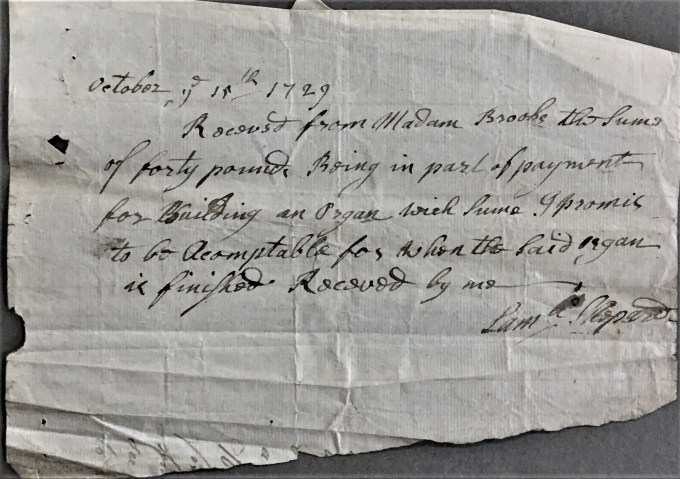 October ye 15th 1729
Receved from Madam Brooke the Sume
of forty pounds Being in part of payment
for Building an Organ wich Sume I promis
to be Acomptable for when the Said organ
is finished Receved by me
Shepard